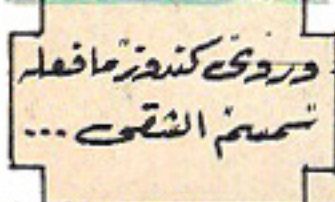 وروى كندوز ما فعله
سمسم الشقى ...